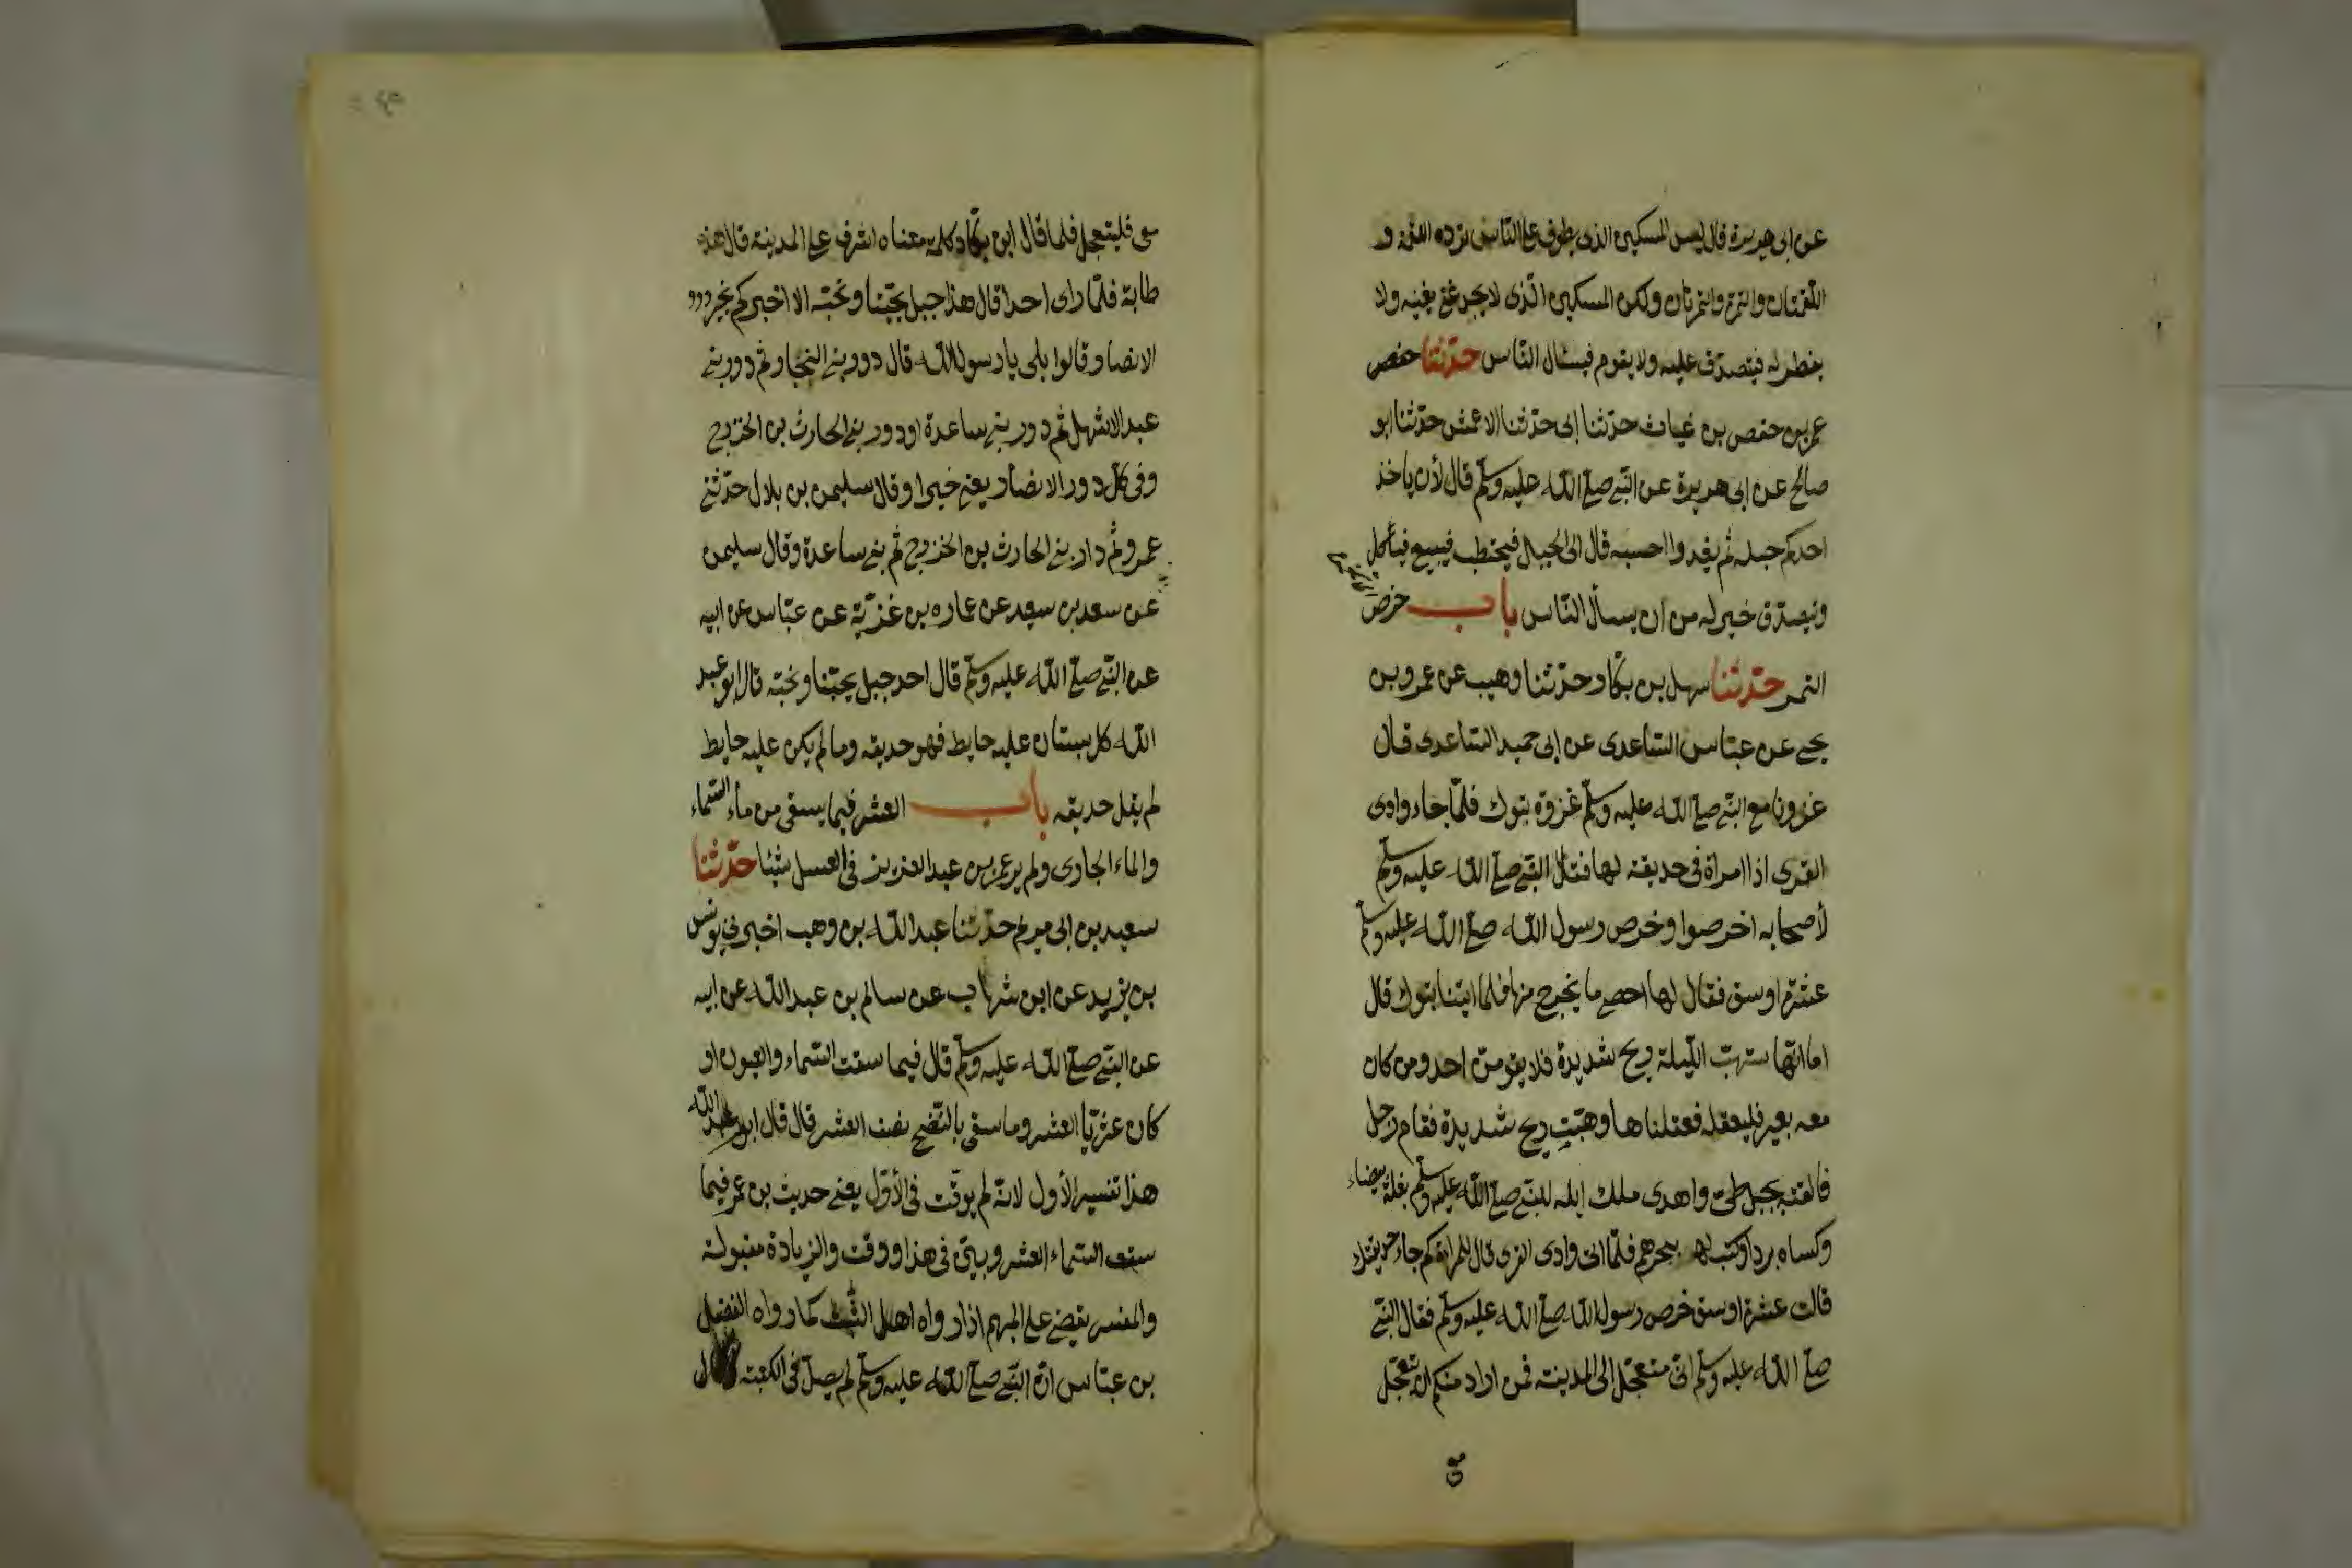 عن ابى هريرة قال ليس المسكين الذى يطوف على الناس ترده اللقمة و
اللقمتان والتمرة والتمرتان ولكن المسكين الذى لا يجد غنى يغنيه ولا
يفطن له فيتصدق عليه ولا يقوم فيسال الناس حدثنا حفص
عمر بن حفص بن غياث حدثنا ابى حدثنا الاعمش حدثنا ابو
صالح عن ابى هريرة عن النبي صلى الله عليه وسلم قال لأن ياخذ
احدكم حبله ثم يغدوا احسبه قال الى الجبل فيحتطب فيبيع فيأكل
ويتصدق خير له من ان يسأل الناس باب خرص
التمر حدثنا سهل بن بكار حدثنا وهيب عن عمرو بن
يحيى عن عباس الساعدى عن ابى حميد الساعدى قال
غزونا مع النبي صلى الله عليه وسلم غزوة تبوك فلما جاء وادى
القرى اذا امراة فى حديقة لها فقال النبي صلى الله عليه وسلم
لأصحابه اخرصوا وخرص رسول الله صلى الله عليه وسلم
عشرة اوسق فقال لها احصى ما يخرج منها فلما اتينا تبوك قال
اما انها ستهب الليلة ريح شديدة فلا يقومن احد ومن كان
معه بعير فليعقله فعقلناها وهبت ريح شديدة فقام رجل
فالقته بجبل طى واهدى ملك ايله للنبي صلى الله عليه وسلم بغلة بيضاء
وكساه بردا وكتب له ببحرهم فلما اتى وادى القرى قال للمراة كم جاء حديقتك
قالت عشرة اوسق خرص رسول الله صلى الله عليه وسلم فقال النبي
صلى الله عليه وسلم انى متعجل الى المدينة فمن اراد منكم ان يتعجل
معى فليتعجل فلما قال ابن بكار كلمة معناه اشرف على المدينة قال هذه
طابة فلما راى احدا قال هذا جبل يحبنا ونحبه الا اخبركم بخير دور
الانصار قالوا بلى يا رسول الله قال دور بنى النجار ثم دور بنى
عبد الاشهل ثم دور بنى ساعدة او دور بنى الحارث بن الخزرج
وفى كل دور الانصار يعنى خيرا وقال سليمن بن بلال حدثنى
عمرو ثم دار بنى الحارث بن الخزرج ثم بنى ساعدة وقال سليمن
عن سعد بن سعيد عن عماره بن غزية عن عباس عن ابيه
عن النبي صلى الله عليه وسلم قال احد جبل يحبنا ونحبه قال ابو عبد
الله كل بستان عليه حايط فهو حديقه وما لم يكن عليه حايط
لم يقل حديقه باب العشر فيما يسقى من ماء السماء
والماء الجارى ولم ير عمر بن عبد العزيز فى العسل شيئا حدثنا
سعيد بن ابى مريم حدثنا عبد الله بن وهب اخبرنى يونس
بن يزيد عن ابن شهاب عن سالم بن عبد الله عن ابيه
عن النبي صلى الله عليه وسلم قال فيما سقت السماء والعيون او
كان عثريا العشر وما سقى بالنضح نصف العشر قال قال ابو عبد الله
هذا تفسير الأول لانه لم يوقت فى الأول يعنى حديث بن عمر فيما
سقت السماء العشر وبين فى هذا ووقت والزيادة مقبولة
والمفسر يقضى على المبهم اذا رواه اهل الثبت كما رواه الفضل
بن عباس ان النبي صلى الله عليه وسلم لم يصل فى الكعبة